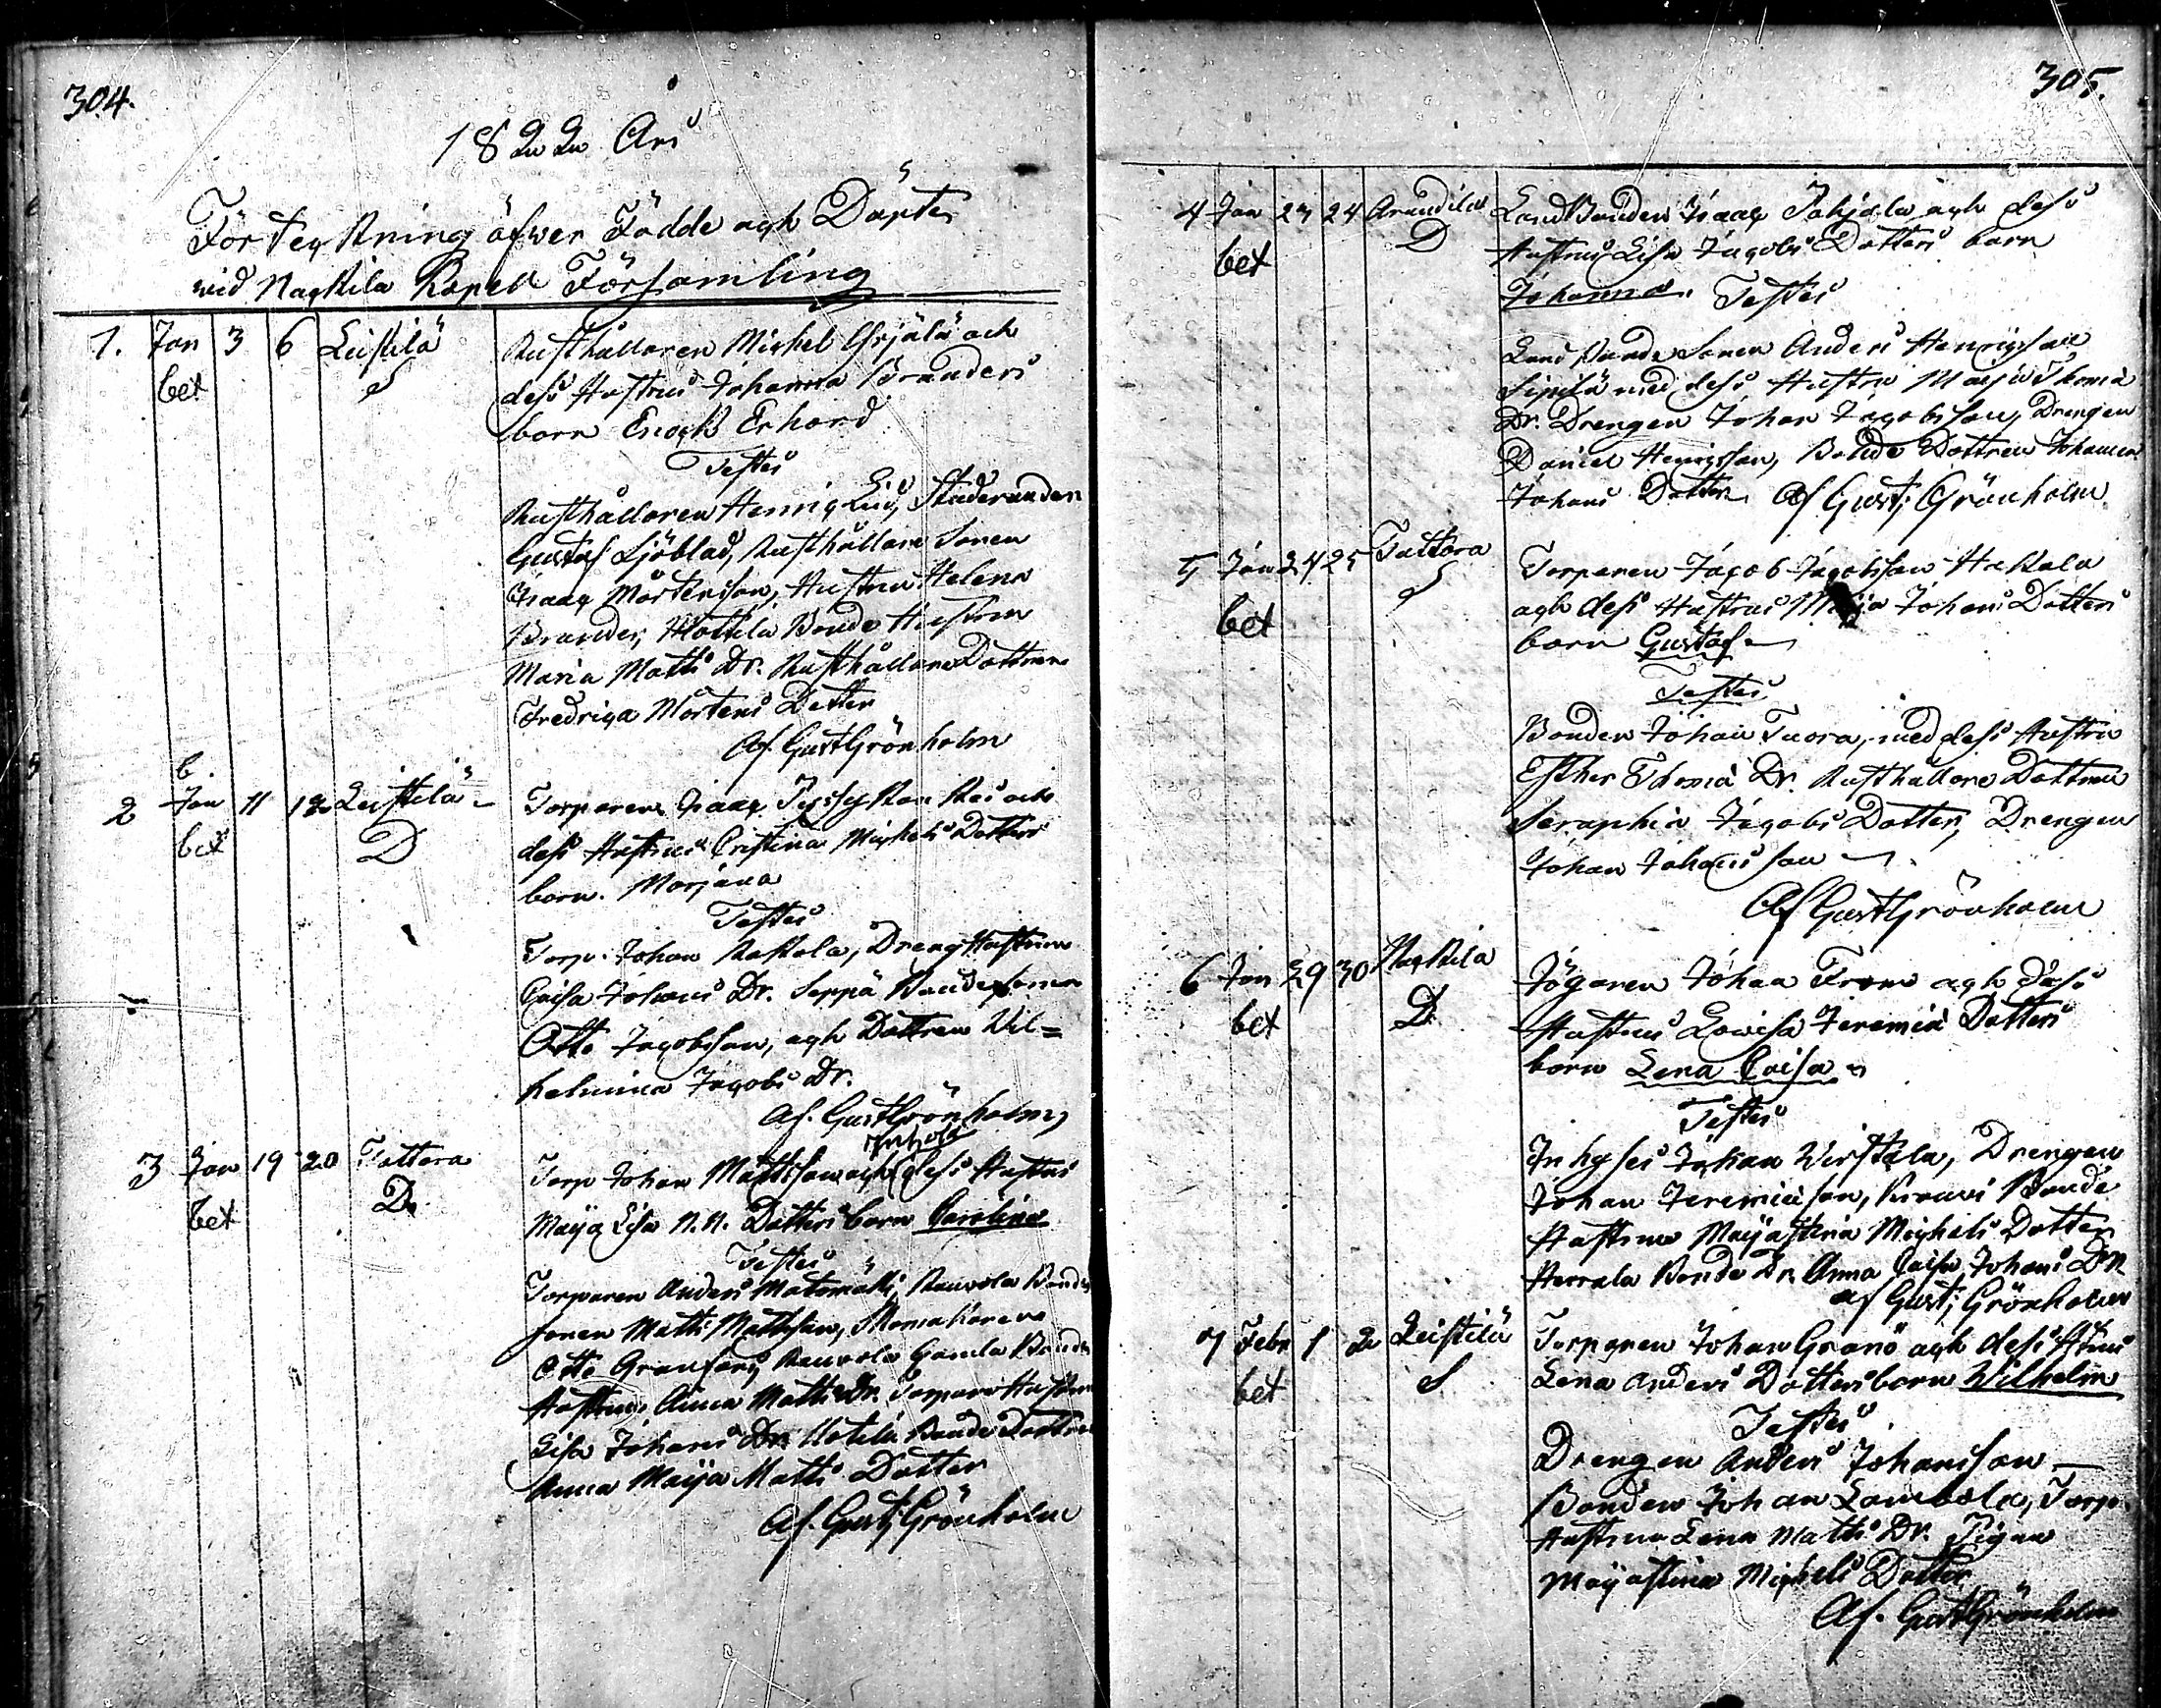 304.
1822 Års
Förteckning öfwer Födde och Döpte
wid Nackila Kapell Församling
1. Jan 3 6 Leistilä Rusthållaren Michel Yrjälä och
bet S dess Hustrus Johanna Branders
barn Enock Erhard
Testes
Rusthållaren Henric Studeranden
Gustaf Sjöblad, Rusthållare Sonen
Isaac Mårtensson, Hustrun Helena
Brander, Mattila Bonde Hustrun
Maria Matts Dr. Rusthållare Dottren
Fredrica Mårtens Dotter
Af. Gust Grönholm
b.
2 Jan 11 12 Leistilä Torparen Isaac och
bet D dess Hustrus Cristina Michels Dotters
barn. Marjana
Testes
Torp. Johan Dreng Hustrun
Caisa Johans Dr. Seppä Bonde Sonen
Otto Jacobsson, och Dottren Wil=
helmina Jacobs Dr.
Af. Gust Grönholm
3 Jan 19 20 Tattara Torp Johan Mattsson och dess Hustrus
bet D. Maja Lisa N.N. Dotters barn Carolina
Testes
Torparen Anders Bonde
Sonen Matts Mattsson, Skomakaren
Otto Granfors, Gamla Bonde
Hustrun Anna Matts Dr. Torpare Hustrun
Lisa Johans Dr. Bonde Dottren
Anna Maja Matts Dotter
Af. Gust Grönholm
305.
4 Jan 23 24 Arandila Land Bonden Isaac Tohjala och dess
bet D Hustrus Lisa Jacobs Dotters barn
Johanna. Testes
Land Bonde Sonen Anders Henricsson
med dess Hustru Maja Thoma
Dr. Drengen Johan Jacobsson, Drengen
Daniel Henricsson, Bonde Dottren Johanna
Johans Dotter. Af Gust; Grönholm
5 Jan 24 25 Tattara Torparen Jacob Jacobsson Hakala
bet S och dess Hustrus Maja Johans Dotters
barn Gustaf
Testes
Bonden Johan Tuora, med dess Hustru
Esther Thoma Dr. Rusthållare Dottren
Seraphia Jacobs Dotter, Drengen
Johan Johansson
Af Gust Grönholm
6 Jan 29 30 Nackila Jägaren Johan From och dess
bet D Hustrus Lowisa Jeremia Dotters
barn Lena Caisa
Testes
Inhyses Johan Wirstala, Drengen
Johan Jeremiasson, Bonde
Hustrun Majastina Michels Dotter
Herrala Bonde Dr. Anna Caisa Johans Dr
Af Gust; Grönholm
7 Febr 1 2 Leistilä Torparen Johan Granö och dess Hustrus
bet S Lena Anders Dotters barn Wilhelm
Testes
Drengen Anders Johansson
Bonden Johan Lambola, Torp.
Hustrun Lena Matts Dr. Pigan
Majastina Michels Dotter
Af. Gust Grönholm